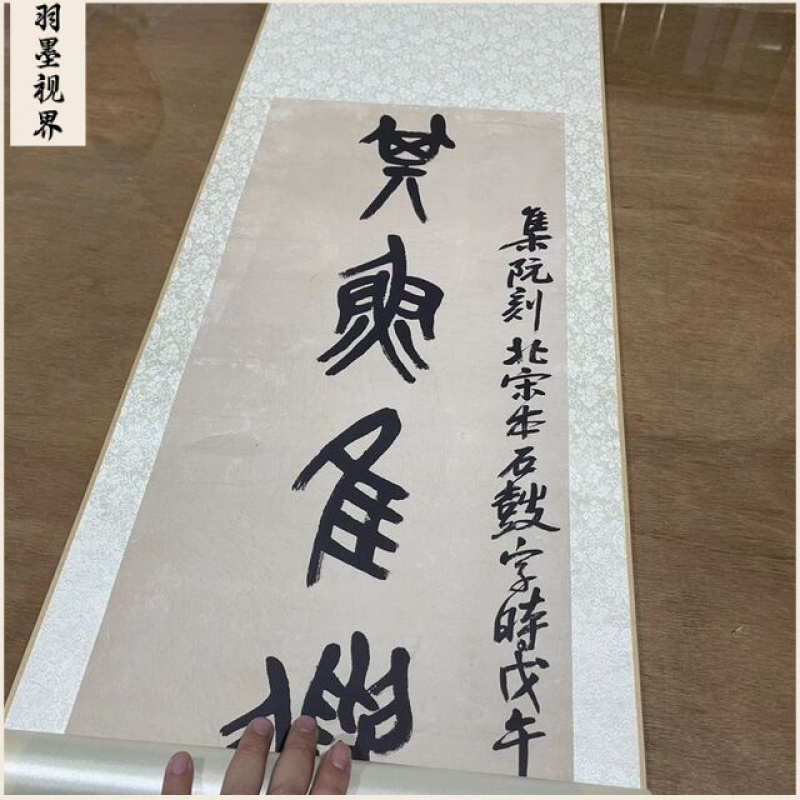 羽墨视界
集阮刻北宋本石鼓字時戊午
其
隹